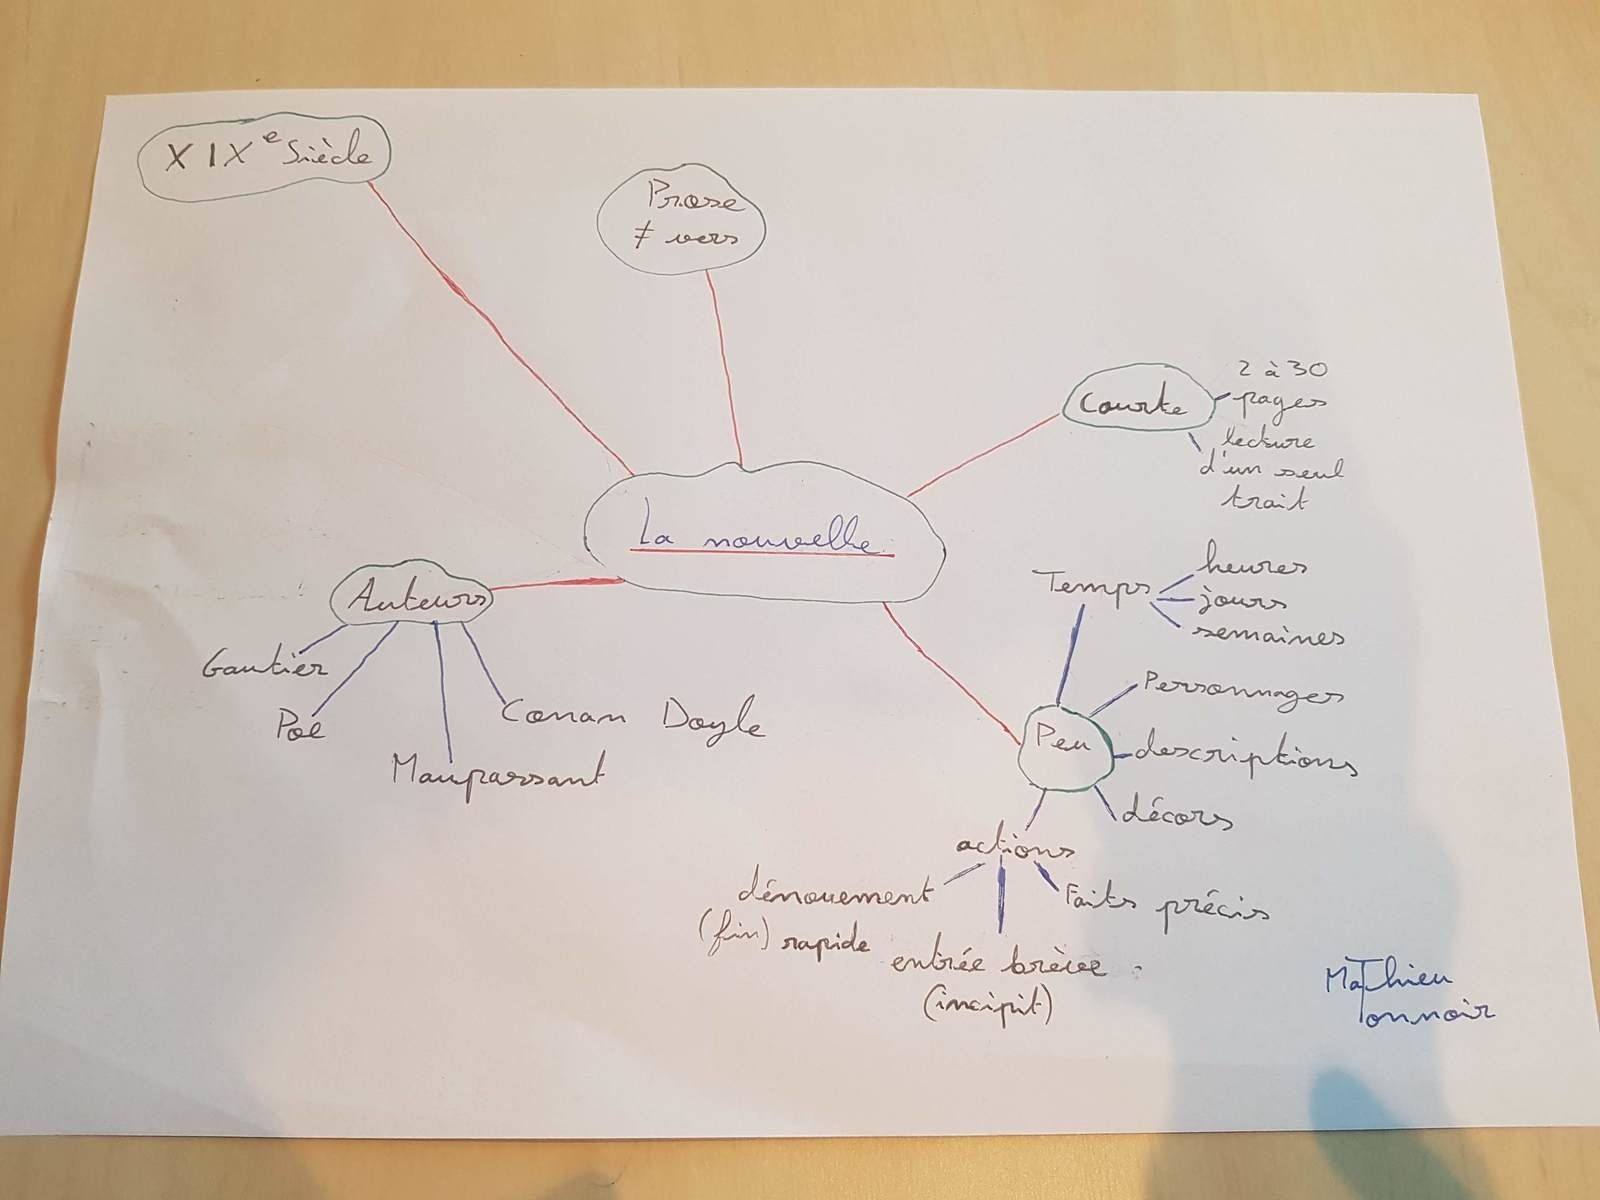 XIXe Siècle
Prose
≠ vers
Courte
2 à 30
pages
lecture
d'un seul
trait
La nouvelle
Temps
heures
jours
semaines
Auteurs
Gautier
Poe
Maupassant
Conan Doyle
Peu
Personnages
descriptions
décors
actions
dénouement
(fin) rapide
entrée brève
(incipit)
Faits précis
MaThieu
Tonnoir